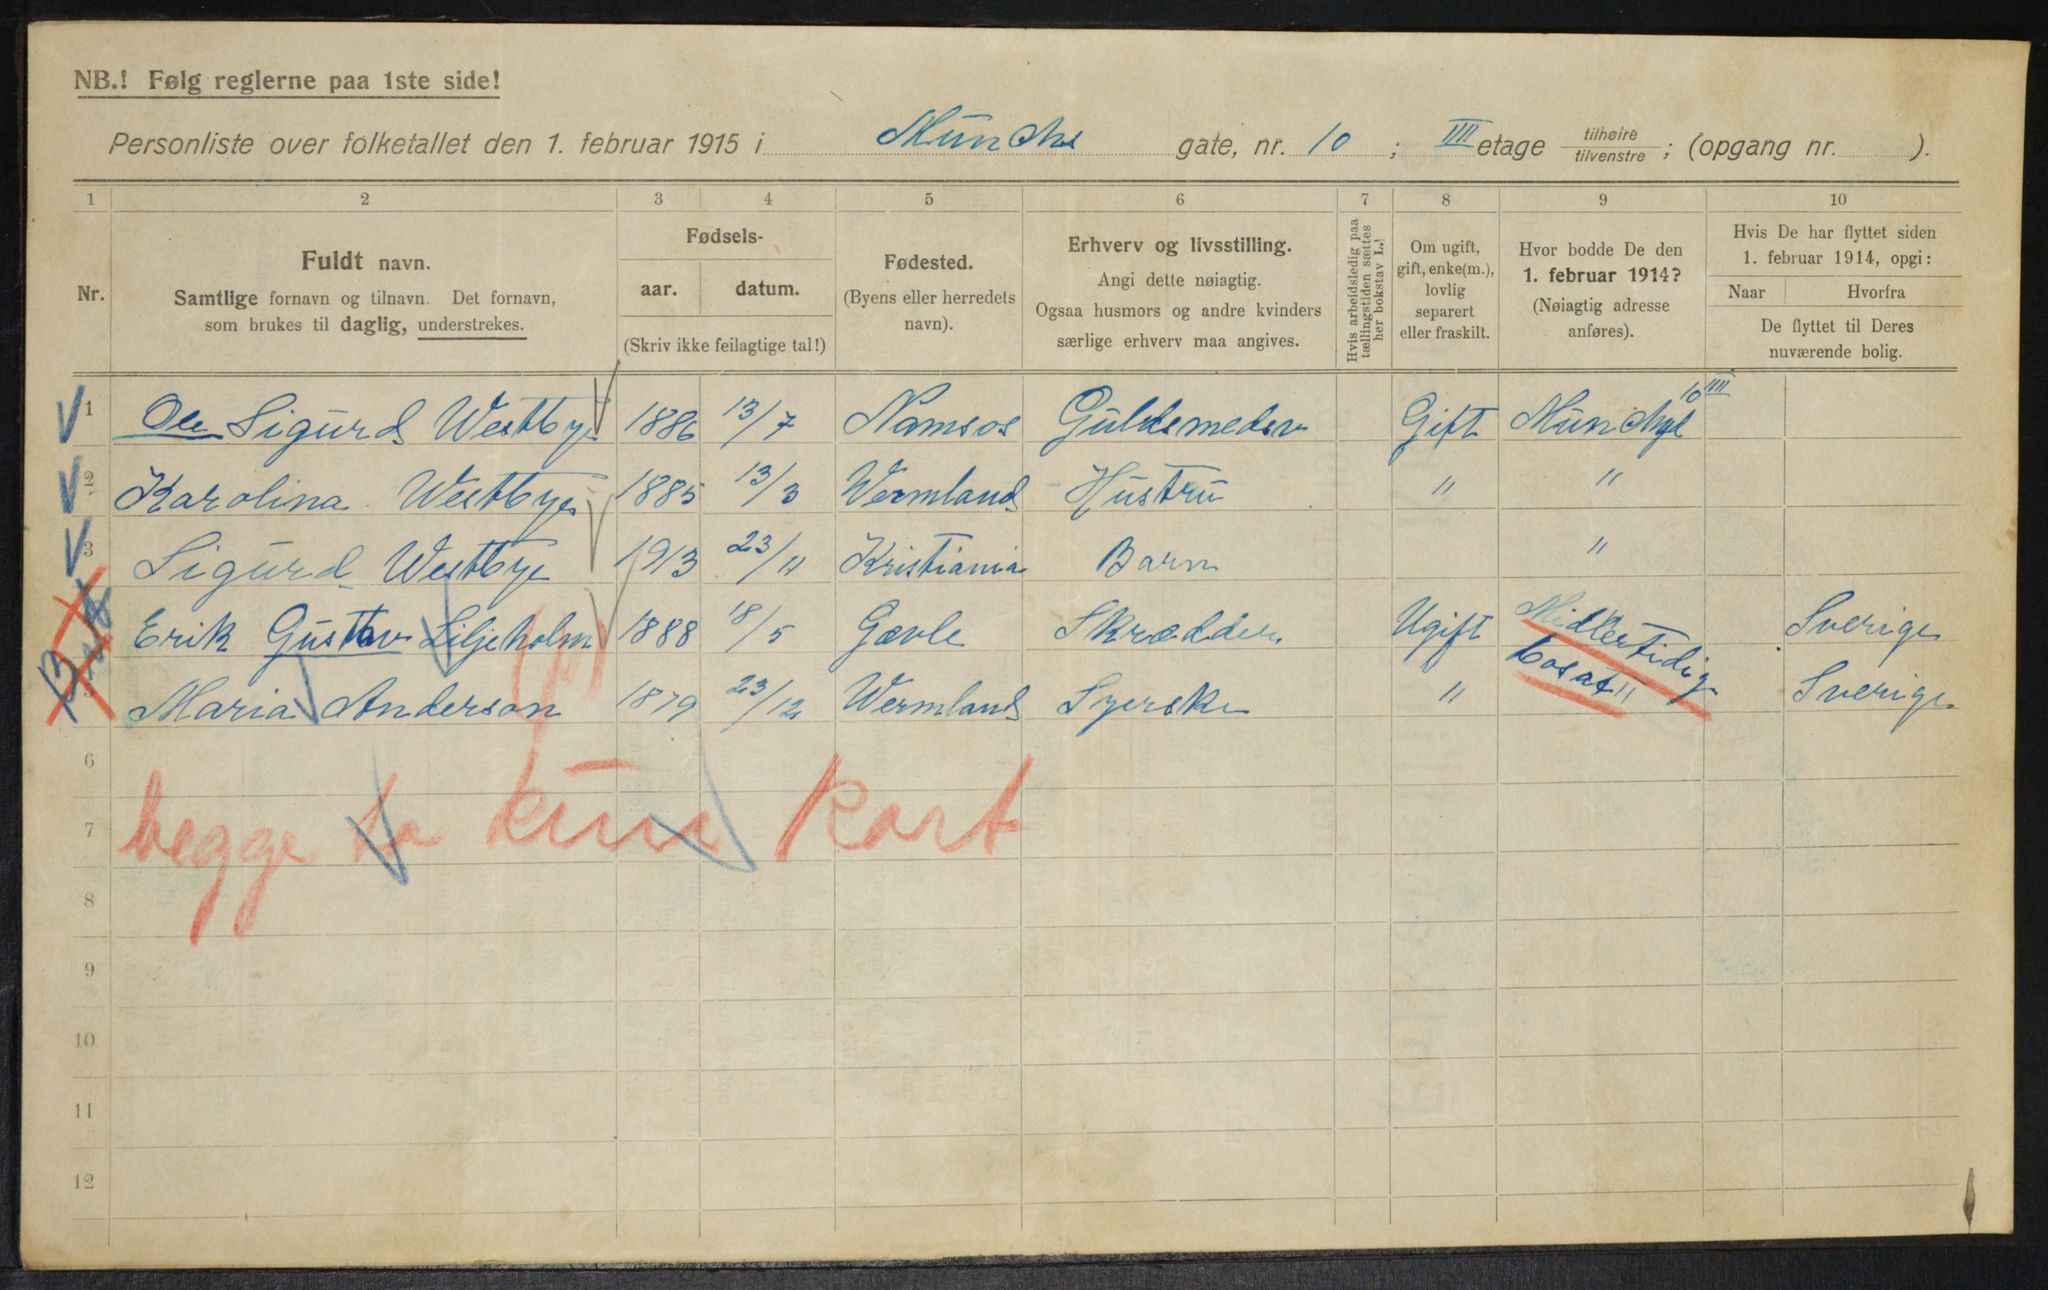 NB.! Følg reglerne paa 1ste side!
Personliste over folketallet den 1. februar 1915 i Münchs gate, nr. 10 ; IIII etage tilhøire/tilvenstre ; (opgang nr. ).
1 2 3 4 5 6 7 8 9 10
Nr.
Fuldt navn.
Samtlige fornavn og tilnavn. Det fornavn,
som brukes til daglig, understrekes.
Fødsels-
aar. datum.
(Skriv ikke feilagtige tal!)
Fødested.
(Byens eller herredets
navn).
Erhverv og livsstilling.
Angi dette nøiagtig.
Ogsaa husmors og andre kvinders
særlige erhverv maa angives.
Hvis arbeidsledig paa
tællingstiden sættes
her bokstav L.!
Om ugift,
gift, enke(m.),
lovlig
separert
eller fraskilt.
Hvor bodde De den
1. februar 1914?
(Nøiagtig adresse
anføres).
Hvis De har flyttet siden
1. februar 1914, opgi:
Naar Hvorfra
De flyttet til Deres
nuværende bolig.
1 Ole Sigurd Westbye 1886 13/7 Namsos Guldsmedsv Gift Münchgt 10 IIII
2 Karolina Westbye 1885 13/3 Wermland Hustru " "
3 Sigurd Westbye 1913 23/11 Kristiania Barn "
Erik Gustav Liljeholm 1888 18/5 Gævle Skrædder Ugift Midlertidig bosat Sverige
Maria Anderson 1879 23/12 Wermland Syerske " " Sverige
6
begge to kun kort
7
8
9
10
11
12